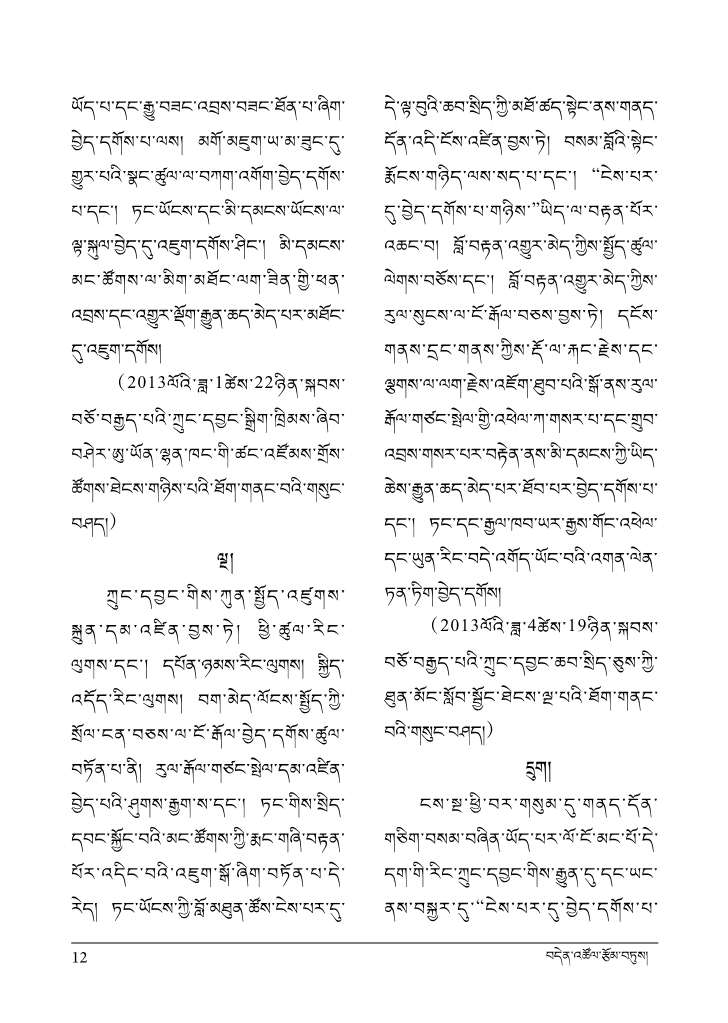 ཡོད་པ་དང་རྒྱུ་བཟང་འབྲས་བཟང་ཐོན་པ་ཞིག་
བྱེད་དགོས་པ་ལས། མགོ་མཇུག་ཡ་མ་ཟུང་དུ་
གྱུར་པའི་སྣང་ཚུལ་ལ་བཀག་འགོག་བྱེད་དགོས་
པ་དང་། ཏང་ཡོངས་དང་མི་དམངས་ཡོངས་ལ་
ལྟ་སྐུལ་བྱེད་དུ་འཇུག་དགོས་ཤིང་། མི་དམངས་
མང་ཚོགས་ལ་མིག་མཐོང་ལག་ཟིན་གྱི་ཕན་
འབྲས་དང་འགྱུར་ལྡོག་རྒྱུན་ཆད་མེད་པར་མཐོང་
དུ་འཇུག་དགོས།
(2013ལོའི་ཟླ་1ཚེས་22ཉིན་སྐབས་
བཅོ་བརྒྱད་པའི་ཀྲུང་དབྱང་སྒྲིག་ཁྲིམས་ཞིབ་
བཤེར་ཨུ་ཡོན་ལྷན་ཁང་གི་ཚང་འཛོམས་གྲོས་
ཚོགས་ཐེངས་གཉིས་པའི་ཐོག་གནང་བའི་གསུང་
བཤད།)
ལྔ།
ཀྲུང་དབྱང་གིས་ཀུན་སྤྱོད་འཛུགས་
སྐྲུན་དམ་འཛིན་བྱས་ཏེ། ཕྱི་ཚུལ་རིང་
ལུགས་དང་། དཔོན་ཉམས་རིང་ལུགས། སྐྱིད་
འདོད་རིང་ལུགས། བག་མེད་ལོངས་སྤྱོད་ཀྱི་
སྲོལ་ངན་བཅས་ལ་ངོ་རྒོལ་བྱེད་དགོས་ཚུལ་
བཏོན་པ་ནི། རུལ་རྒོལ་གཙང་སྤེལ་དམ་འཛིན་
བྱེད་པའི་ཤུགས་རྒྱག་ས་དང་། ཏང་གིས་སྲིད་
དབང་སྐྱོང་བའི་མང་ཚོགས་ཀྱི་རྨང་གཞི་བརྟན་
པོར་འདིང་བའི་འཇུག་སྒོ་ཞིག་བཏོན་པ་དེ་
རེད། ཏང་ཡོངས་ཀྱི་བློ་མཐུན་ཚོས་ངེས་པར་དུ་
དེ་ལྟ་བུའི་ཆབ་སྲིད་ཀྱི་མཐོ་ཚད་སྟེང་ནས་གནད་
དོན་འདི་ངོས་འཛིན་བྱས་ཏེ། བསམ་བློའི་སྟེང་
རྨོངས་གཉིད་ལས་སད་པ་དང་། “ངེས་པར་
དུ་བྱེད་དགོས་པ་གཉིས་”ཡིད་ལ་བརྟན་པོར་
འཆང་བ། བློ་བརྟན་འགྱུར་མེད་ཀྱིས་སྤྱོད་ཚུལ་
ལེགས་བཅོས་དང་། བློ་བརྟན་འགྱུར་མེད་ཀྱིས་
རུལ་སུངས་ལ་ངོ་རྒོལ་བཅས་བྱས་ཏེ། དངོས་
གནས་དྲང་གནས་ཀྱིས་རྡོ་ལ་རྐང་རྗེས་དང་
ལྕགས་ལ་ལག་རྗེས་འཇོག་ཐུབ་པའི་སྒོ་ནས་རུལ་
རྒོལ་གཙང་སྤེལ་གྱི་འཕེལ་ཀ་གསར་པ་དང་གྲུབ་
འབྲས་གསར་པར་བརྟེན་ནས་མི་དམངས་ཀྱི་ཡིད་
ཆེས་རྒྱུན་ཆད་མེད་པར་ཐོབ་པར་བྱེད་དགོས་པ་
དང་། ཏང་དང་རྒྱལ་ཁབ་ཡར་རྒྱས་གོང་འཕེལ་
དང་ཡུན་རིང་བདེ་འགོད་ཡོང་བའི་འགན་ལེན་
ཏན་ཏིག་བྱེད་དགོས།
(2013ལོའི་ཟླ་4ཚེས་19ཉིན་སྐབས་
བཅོ་བརྒྱད་པའི་ཀྲུང་དབྱང་ཆབ་སྲིད་ཅུས་ཀྱི་
ཐུན་མོང་སློབ་སྦྱོང་ཐེངས་ལྔ་པའི་ཐོག་གནང་
བའི་གསུང་བཤད།)
དྲུག།
ངས་སྔ་ཕྱི་བར་གསུམ་དུ་གནད་དོན་
གཅིག་བསམ་བཞིན་ཡོད་པར་ལོ་ངོ་མང་པོ་དེ་
དག་གི་རིང་ཀྲུང་དབྱང་གིས་རྒྱུན་དུ་དང་ཡང་
ནས་བསྐྱར་དུ་“ངེས་པར་དུ་བྱེད་དགོས་པ་
12
བདེན་འཚོལ་རྩོམ་བཏུས།